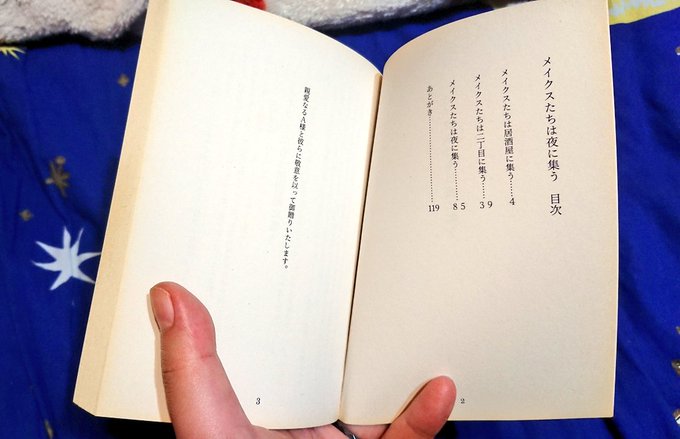 メイクスたちは夜に集う　目次
メイクスたちは居酒屋に集う……4
メイクスたちは二丁目に集う……39
メイクスたちは夜に集う…………85
あとがき………………119
2
親愛なるA様と彼らに敬意を以って御贈りいたします。
3